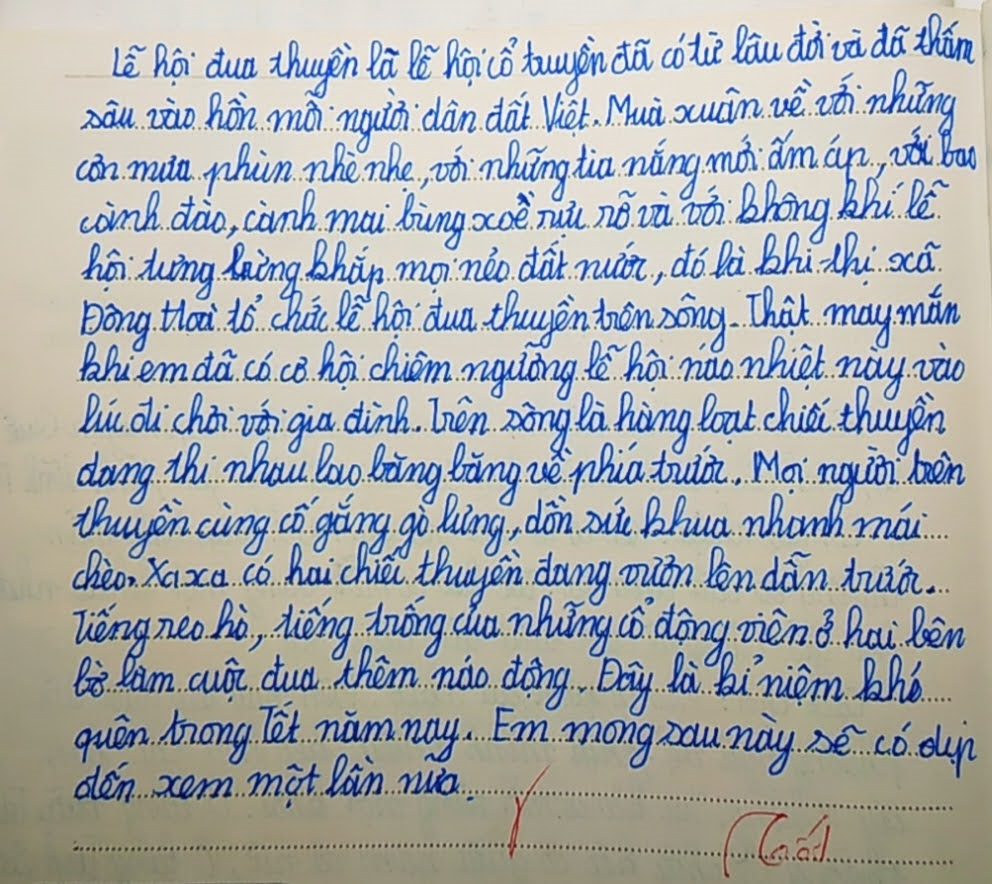 Lễ hội đua thuyền là lễ hội cổ truyền đã có từ lâu đời và đã thấm
sâu vào hồn mỗi người dân đất Việt. Mùa xuân về với những
cơn mưa phùn nhè nhẹ, với những tia nắng mới ấm áp, với bao
cành đào, cành mai bùng xoè rực rỡ và với không khí lễ
hội tưng bừng khắp mọi nẻo đất nước, đó là khi thị xã
Đông Hoà tổ chức lễ hội đua thuyền trên sông. Thật may mắn
khi em đã có cơ hội chiêm ngưỡng lễ hội náo nhiệt này vào
lúc đi chơi với gia đình. Trên sông là hàng loạt chiếc thuyền
đang thi nhau lao băng băng về phía trước. Mọi người trên
thuyền cùng cố gắng gò lưng, dồn sức khua nhanh mái
chèo. Xa xa có hai chiếc thuyền đang vươn lên dẫn trước.
Tiếng reo hò, tiếng trống của những cổ động viên ở hai bên
bờ làm cuộc đua thêm náo động. Đây là kỉ niệm khó
quên trong Tết năm nay. Em mong sau này sẽ có dịp
đến xem một lần nữa.
Tốt